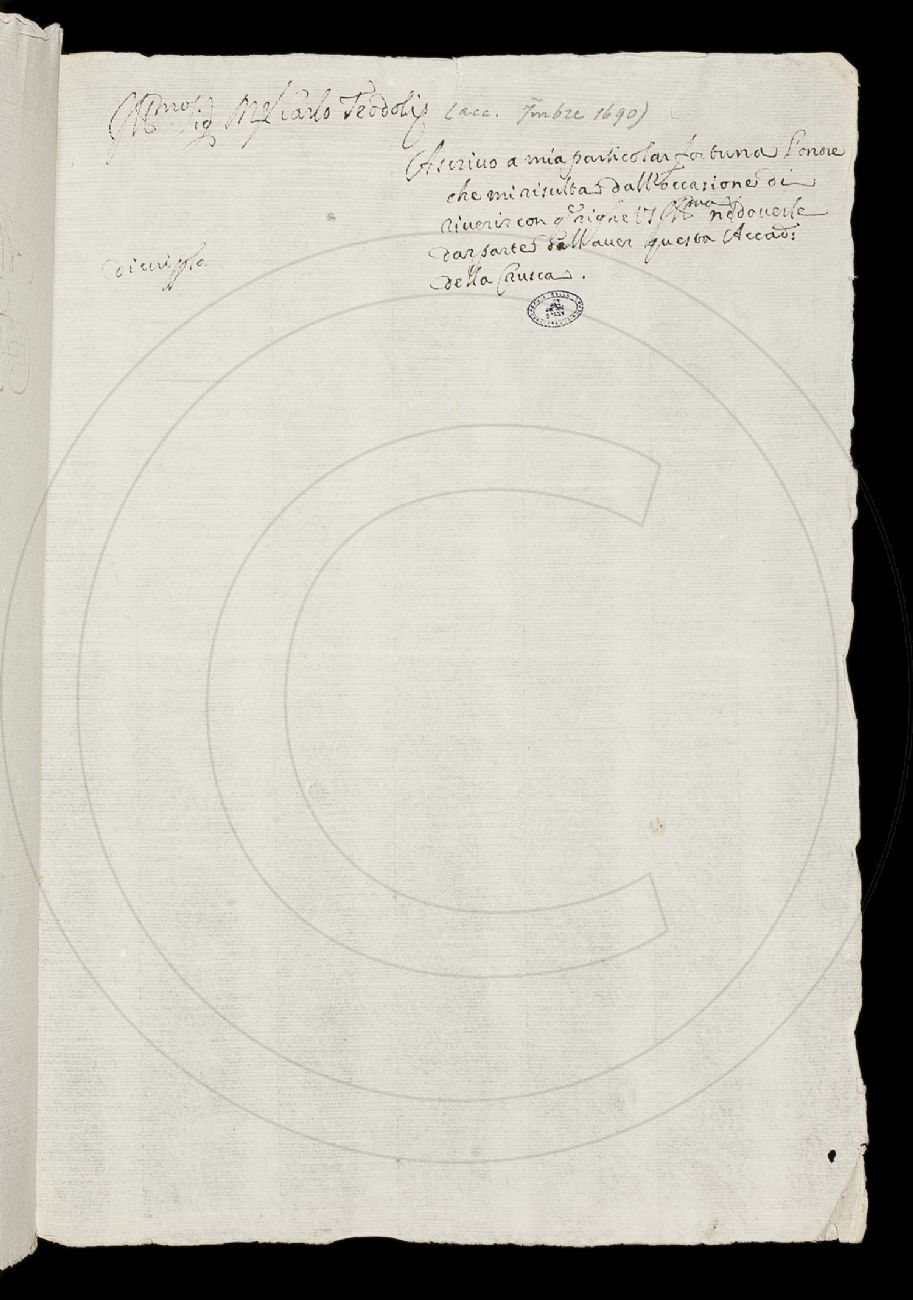 Ill.mo Sig. Mse Carlo Teodoli (acc. 7mbre 1690)
Ascrivo a mia particolar fortuna l'onore
che mi risulta dall'occasione di
riverir con q.e righe VS Ill.ma nel doverle
dar parte dell'aver questa Accad:
della Crusca.